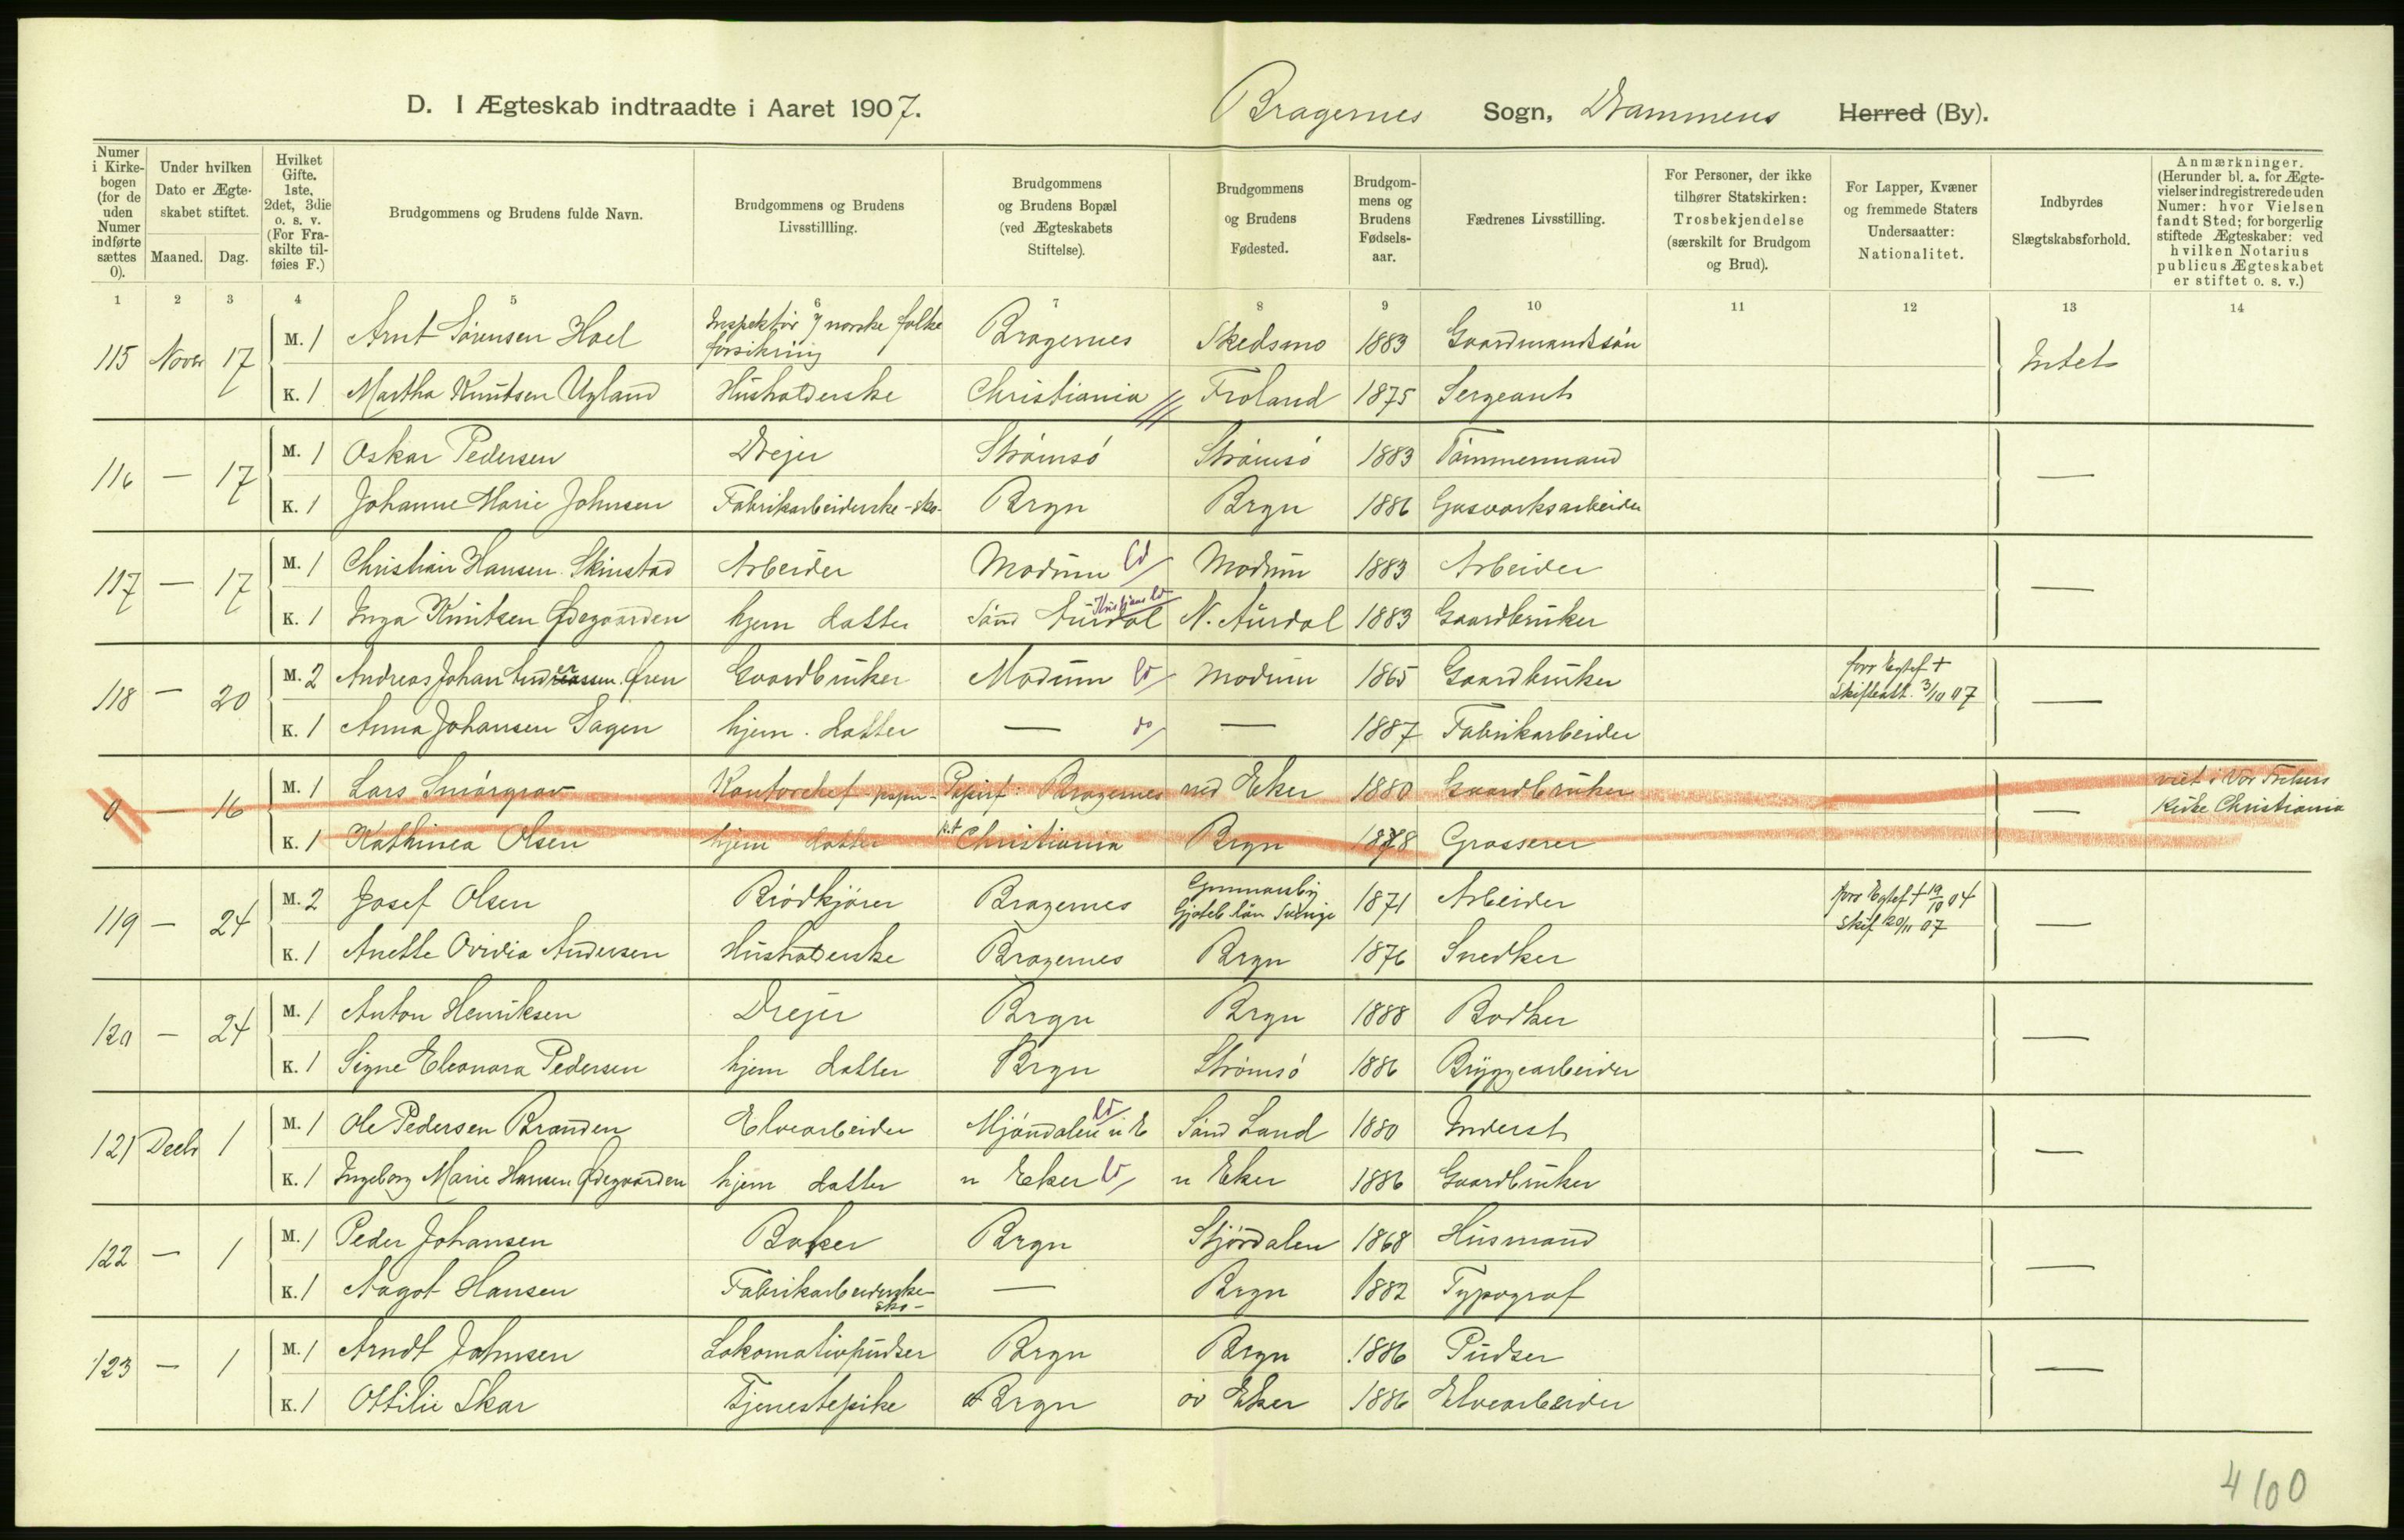 D. I Ægteskab indtraadte i Aaret 1907. Bragernes Sogn, Drammens Herred (By).
Numer i Kirkebogen (for de uden Numer indførte sættes 0).
Under hvilken Dato er Ægteskabet stiftet.
Maaned. Dag.
Hvilket Gifte. 1ste, 2det, 3die o. s. v. (For Fraskilte tilføies F.)
Brudgommens og Brudens fulde Navn.
Brudgommens og Brudens Livsstillling.
Brudgommens og Brudens Bopæl (ved Ægteskabets Stiftelse).
Brudgommens og Brudens Fødested.
Brudgommens og Brudens Fødselsaar.
Fædrenes Livsstilling.
For Personer, der ikke tilhører Statskirken: Trosbekjendelse (særskilt for Brudgom og Brud).
For Lapper, Kvæner og fremmede Staters Undersaatter: Nationalitet.
Indbyrdes Slægtskabsforhold.
Anmærkninger. (Herunder bl. a. for Ægtevielser indregistrerede uden Numer: hvor Vielsen fandt Sted; for borgerlig stiftede Ægteskaber: ved hvilken Notarius publicus Ægteskabet er stiftet o. s. v.)
1 2 3 4 5 6 7 8 9 10 11 12 13 14
115 Novbr 17 M. 1 Arnt Sörensen Hoel Inspektör i norske folke forsikring Bragernes Skedsmo 1883 Gaardmandssön Intet
K. 1 Martha Knutsen Ugland Husholderske Christiania Froland 1875 Sergeant
116 — 17 M. 1 Oskar Pedersen Drejer Strömsö Strömsö 1883 Tömmermand —
K. 1 Johanne Marie Johnsen Fabrikarbeiderske -sko- Brgn Brgn 1886 Gasværksarbeider
117 — 17 M. 1 Christian Hansen Skinstad Arbeider Modum Ld Modum 1883 Arbeider —
K. 1 Inga Knutsen Ødegaarden hjem datter Sönd Aurdal N. Aurdal 1883 Gaardbruker
118 — 20 M. 2 Andreas Johan Øren Gaardbruker Modum Ld Modum 1865 Gaardbruker forr Egtef + Skifteatt. 3/10 07 —
K. 1 Anna Johansen Sagen hjem. datter — do — 1887 Fabrikarbeider
0 — 16 M. 1 Lars Smörgrav Kontorchef Bragernes ned Eker 1880 Gaardbruker — viet i Vor Frelsers Kirke Christiania
K. 1 Kathinca Olsen hjem datter p.t Christiania Brgn 1878 Grosserer
119 — 24 M. 2 Josef Olsen Brödkjörer Bragernes Sverige 1871 Arbeider forr Egtef + 19/10 04 Skif 20/11 07 —
K. 1 Anette Ovidia Andersen Husholderske Bragernes Brgn 1876 Snedker
120 — 24 M. 1 Anton Henriksen Drejer Brgn Brgn 1888 Bödker —
K. 1 Signe Eleonora Pedersen hjem datter Brgn Strömsö 1886 Bryggearbeider
121 Decbr 1 M. 1 Ole Pedersen Branden Elvearbeider Mjöndalen n E Ld Sönd Land 1880 Inderst —
K. 1 Ingeborg Marie Hansen Ødegaarden hjem datter n Eker Ld n Eker 1886 Gaardbruker
122 — 1 M. 1 Peder Johansen Baker Brgn Stjördalen 1868 Husmand —
K. 1 Aagot Hansen Fabrikarbeiderske -sko- — Brgn 1882 Typograf
123 — 1 M. 1 Arndt Johnsen Lokomativpudser Brgn Brgn 1886 Pudser —
K. 1 Ottilie Skar Tjenestepike Brgn öv Eker 1886 Elvearbeider
4100